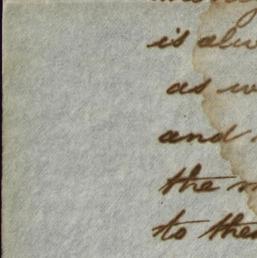 is alw
as w
and
the
to the